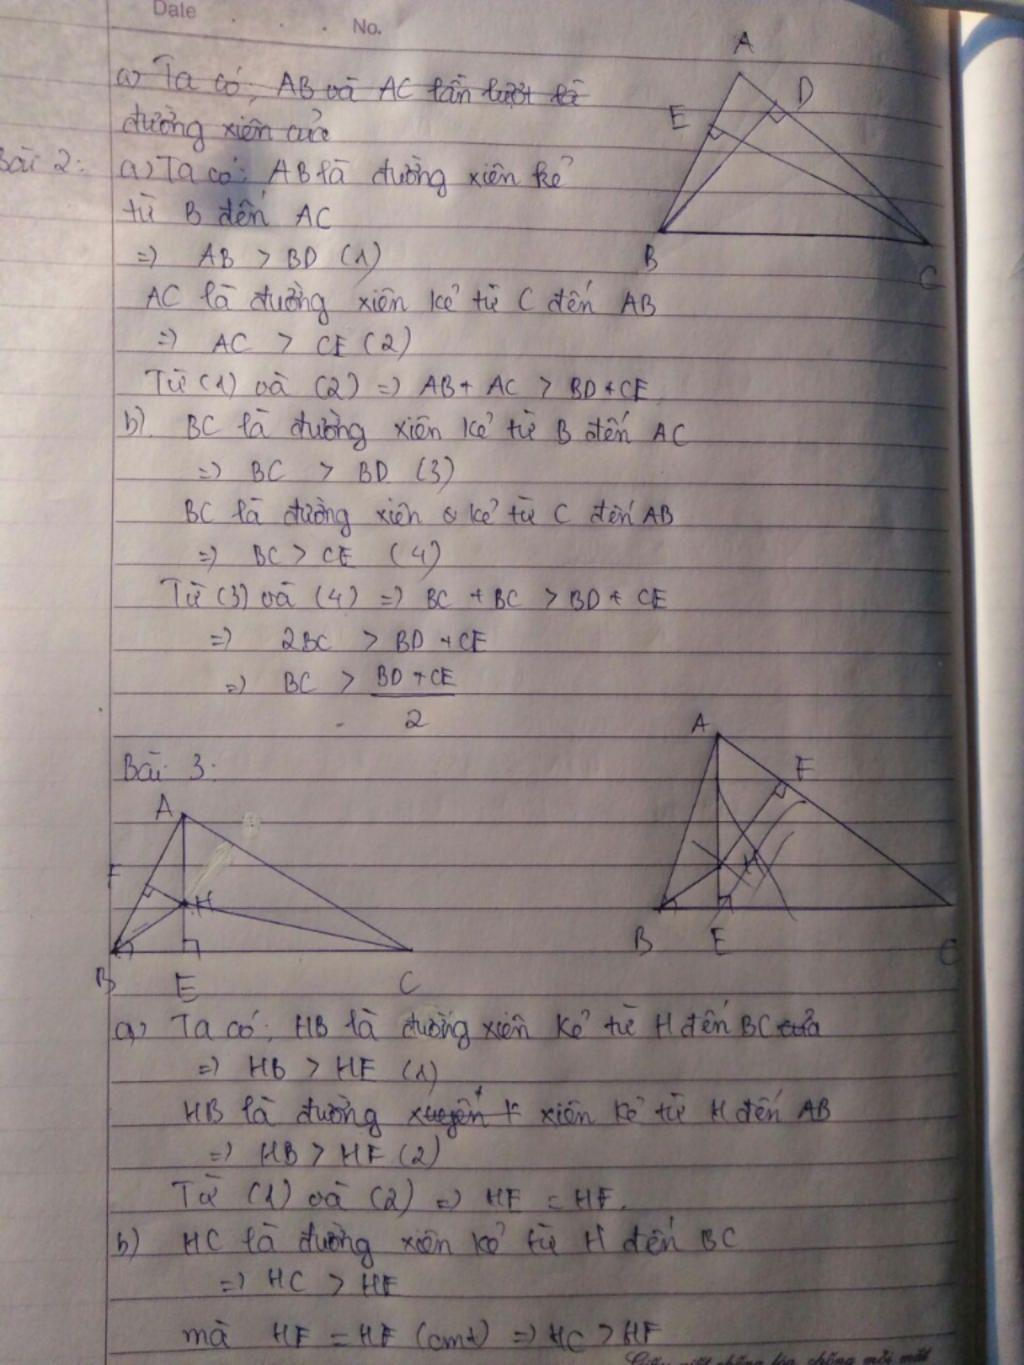 Date
No.
a) Ta có, AB và AC lần lượt là
đường xiên của
Bài 2:
a) Ta có: AB là đường xiên kẻ
từ B đến AC
=> AB > BD (1)
AC là đường xiên kẻ từ C đến AB
=> AC > CE (2)
Từ (1) và (2) => AB + AC > BD + CE
b) BC là đường xiên kẻ từ B đến AC
=> BC > BD (3)
BC là đường xiên kẻ từ C đến AB
=> BC > CE (4)
Từ (3) và (4) => BC + BC > BD + CE
=> 2BC > BD + CE
=> BC > BD + CE
2
A
D
E
B
C
Bài 3:
A
F
H
B
E
C
A
F
H
B
E
C
a) Ta có: HB là đường xiên kẻ từ H đến BC của
=> HB > HE (1)
HB là đường xuyên k xiên kẻ từ H đến AB
=> HB > HF (2)
Từ (1) và (2) => HE = HF.
b) HC là đường xiên kẻ từ H đến BC
=> HC > HE
mà HE = HF (cmt) => HC > HF